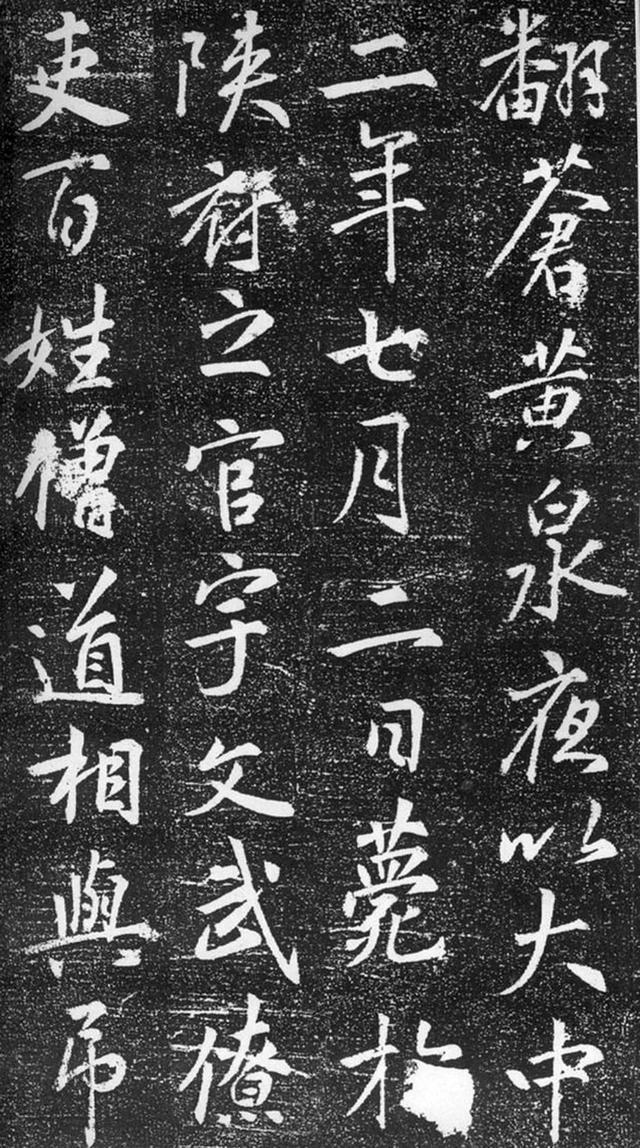 翻蒼黄泉夜以大中
二年七月二日薨於
陝府之官宇文武僚
吏百姓僧道相與吊